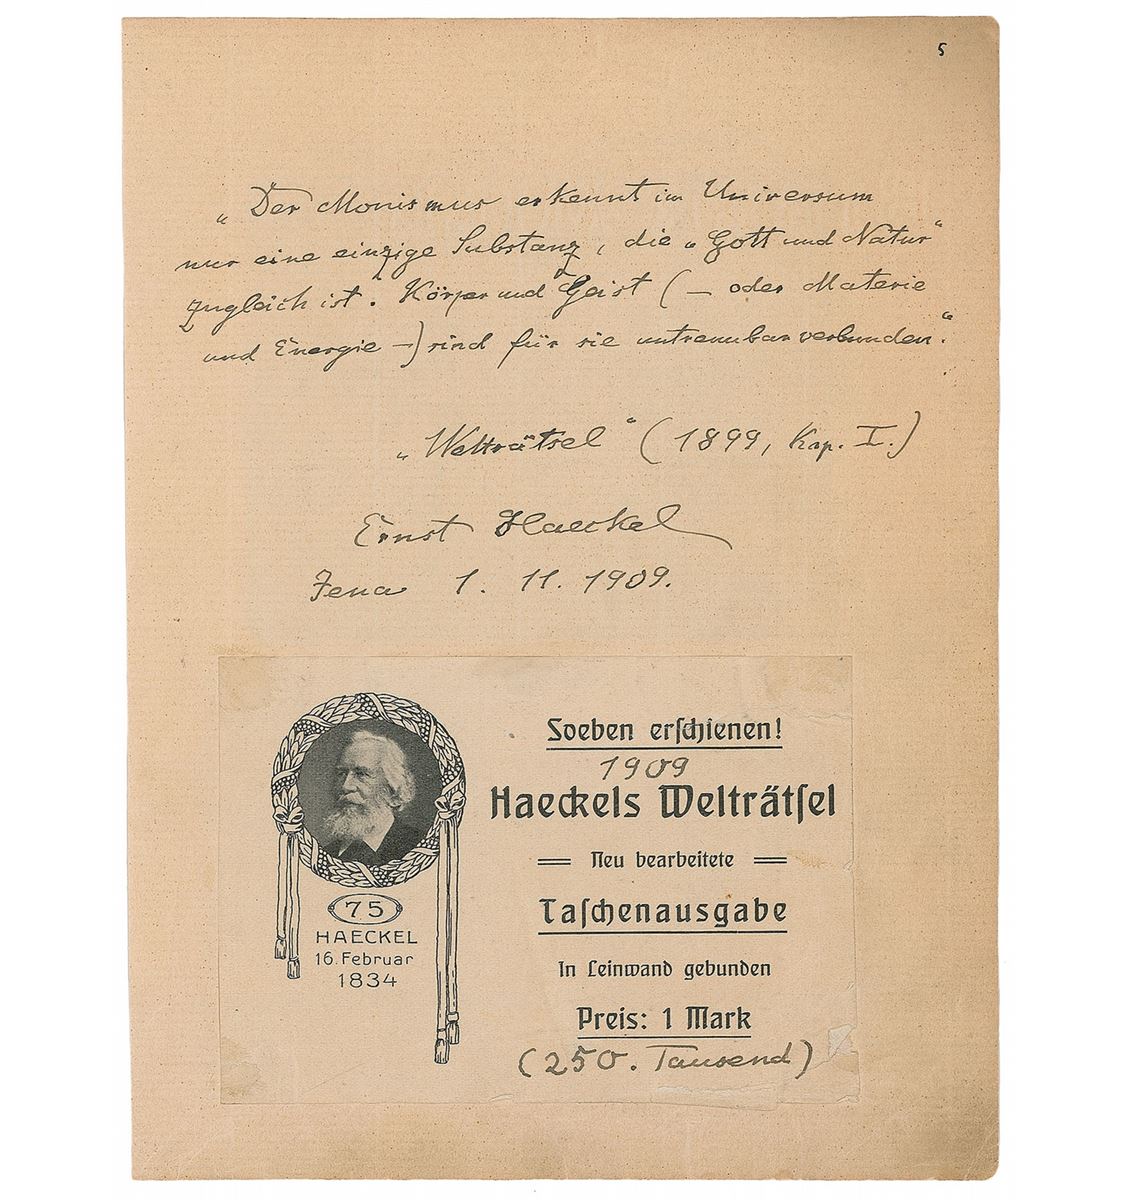 5
„Der Monismus erkennt im Universum
nur eine einzige Substanz, die „Gott und Natur“
zugleich ist. Körper und Geist (– oder Materie
und Energie –) sind für sie untrennbar verbunden.“
„Welträtsel“ (1899, Kap. I.)
Ernst Haeckel
Jena 1. 11. 1909.
Soeben erſchienen!
1909
Haeckels Welträtſel
Neu bearbeitete
Taſchenausgabe
In Leinwand gebunden
Preis: 1 Mark
(250. Tausend)
75
HAECKEL
16. Februar
1834